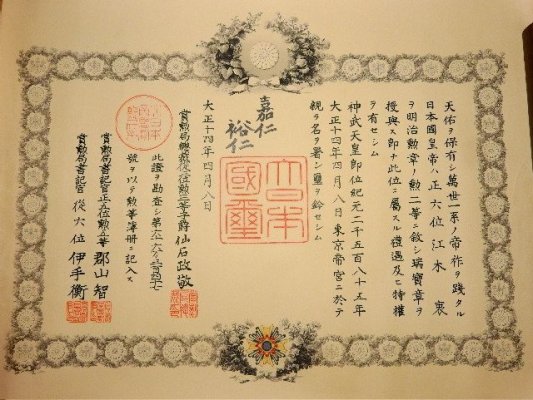 天佑ヲ保有シ萬世一系ノ帝祚ヲ踐タル
日本國皇帝ハ正六位江木衷
ヲ明治勲章ノ勲二等ニ叙シ瑞寶章ヲ
授與ス即チ此位ニ屬スル禮遇及ヒ特權
ヲ有セシム
神武天皇即位紀元二千五百八十五年
大正十四年四月八日東京帝宮ニ於テ
親ラ名ヲ署シ璽ヲ鈐セシム
嘉仁
裕仁
大日本國璽
大正十四年四月八日
賞勲局總裁從 勲 子爵仙石政敬
此證ヲ勘査シ第 號ヲ以テ勲等簿冊ニ記入ス
賞勲局書記官正五位勲五等郡山智
賞勲局書記官從六位伊手衡